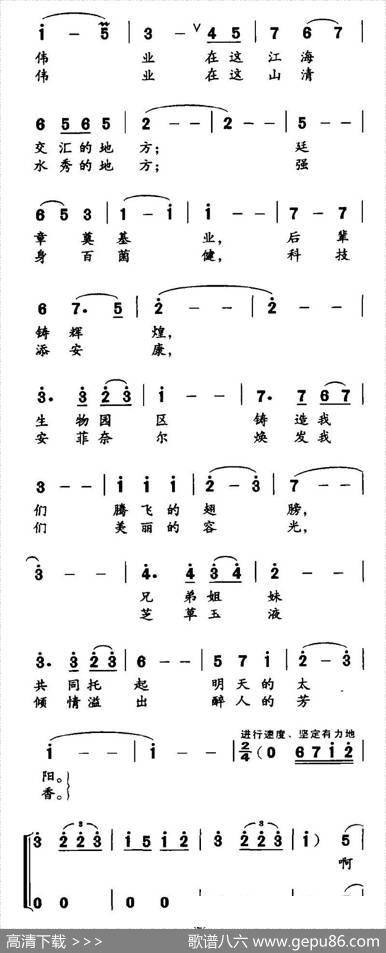 i - 5 | 3 - ∨ 4 5 | 7 6 7 |
伟 业 在这 江海
伟 业 在这 山清
6 5 6 5 | 2 - - | 2 - - | 5 - - |
交汇的地 方； 廷
水秀的地 方； 强
6 5 3 | 1 - i | i - - | 7 - 7 |
章 奠 基 业， 后 辈
身 百 菌 健， 科 技
6 7. 5 | 2 - - | 2 - - |
铸 辉 煌，
添 安 康，
3. 3 2 3 | i - - | 7. 7 6 7 |
生 物园 区 铸 造我
安 菲奈 尔 焕 发我
3 - - | i i i | 2 - 3 | 7 - - |
们 腾飞的 翅 膀，
们 美丽的 容 光，
3 - - | 4. 4 3 4 | 2 - - |
兄 弟姐 妹
芝 草玉 液
3. 3 2 3 | 6 - - | 5 7 i | 2 - 3 |
共 同托 起 明天的 太
倾 情溢 出 醉人的 芳
进行速度、坚定有力地
i - - | i - - | 2/4 (0 6 7 i 2 |
阳。
香。
3 2 2 3 | i 5 i 2 | 3 2 2 3 | i) 5 |
啊
0 0 | 0 0 |
高清下载 >>>
歌谱八六 www.gepu86.com